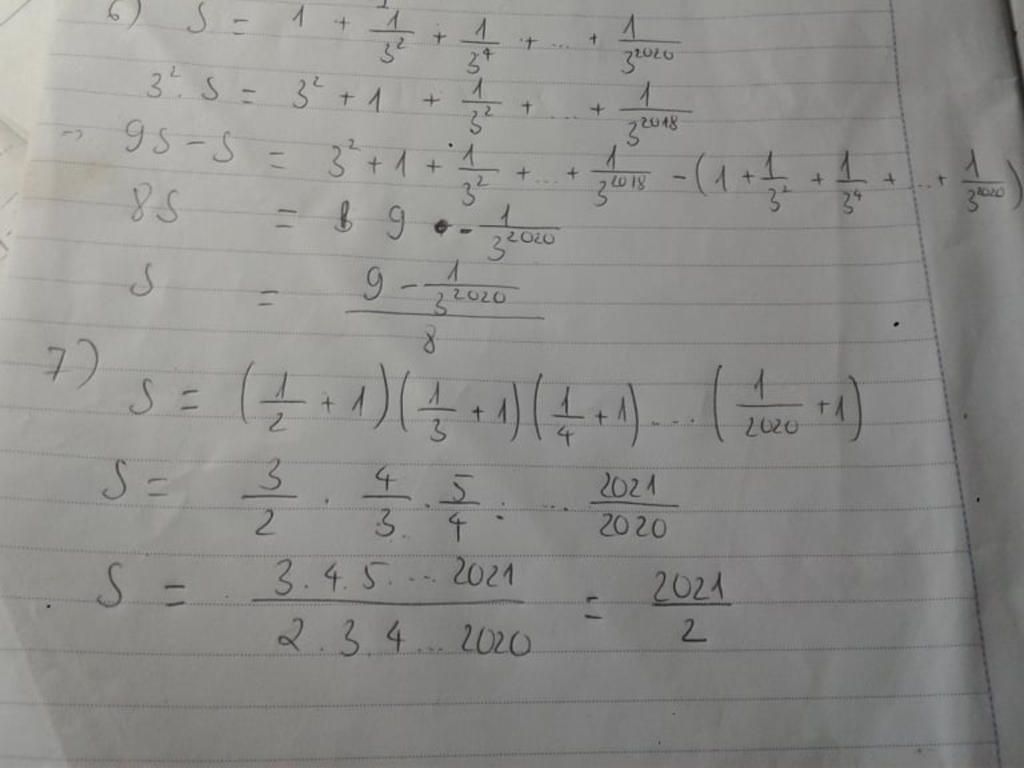 6) S = 1 + 1/3² + 1/3⁴ + ... + 1/3²⁰²⁰
3² . S = 3² + 1 + 1/3² + ... + 1/3²⁰¹⁸
→ 9S - S = 3² + 1 + 1/3² + ... + 1/3²⁰¹⁸ - (1 + 1/3² + 1/3⁴ + ... + 1/3²⁰²⁰)
8S = 9 - 1/3²⁰²⁰
S = (9 - 1/3²⁰²⁰)/8
7)
S = (1/2 + 1)(1/3 + 1)(1/4 + 1) ... (1/2020 + 1)
S = 3/2 . 4/3 . 5/4 : ... 2021/2020
S = (3 . 4 . 5 ... 2021)/(2 . 3 . 4 ... 2020) = 2021/2